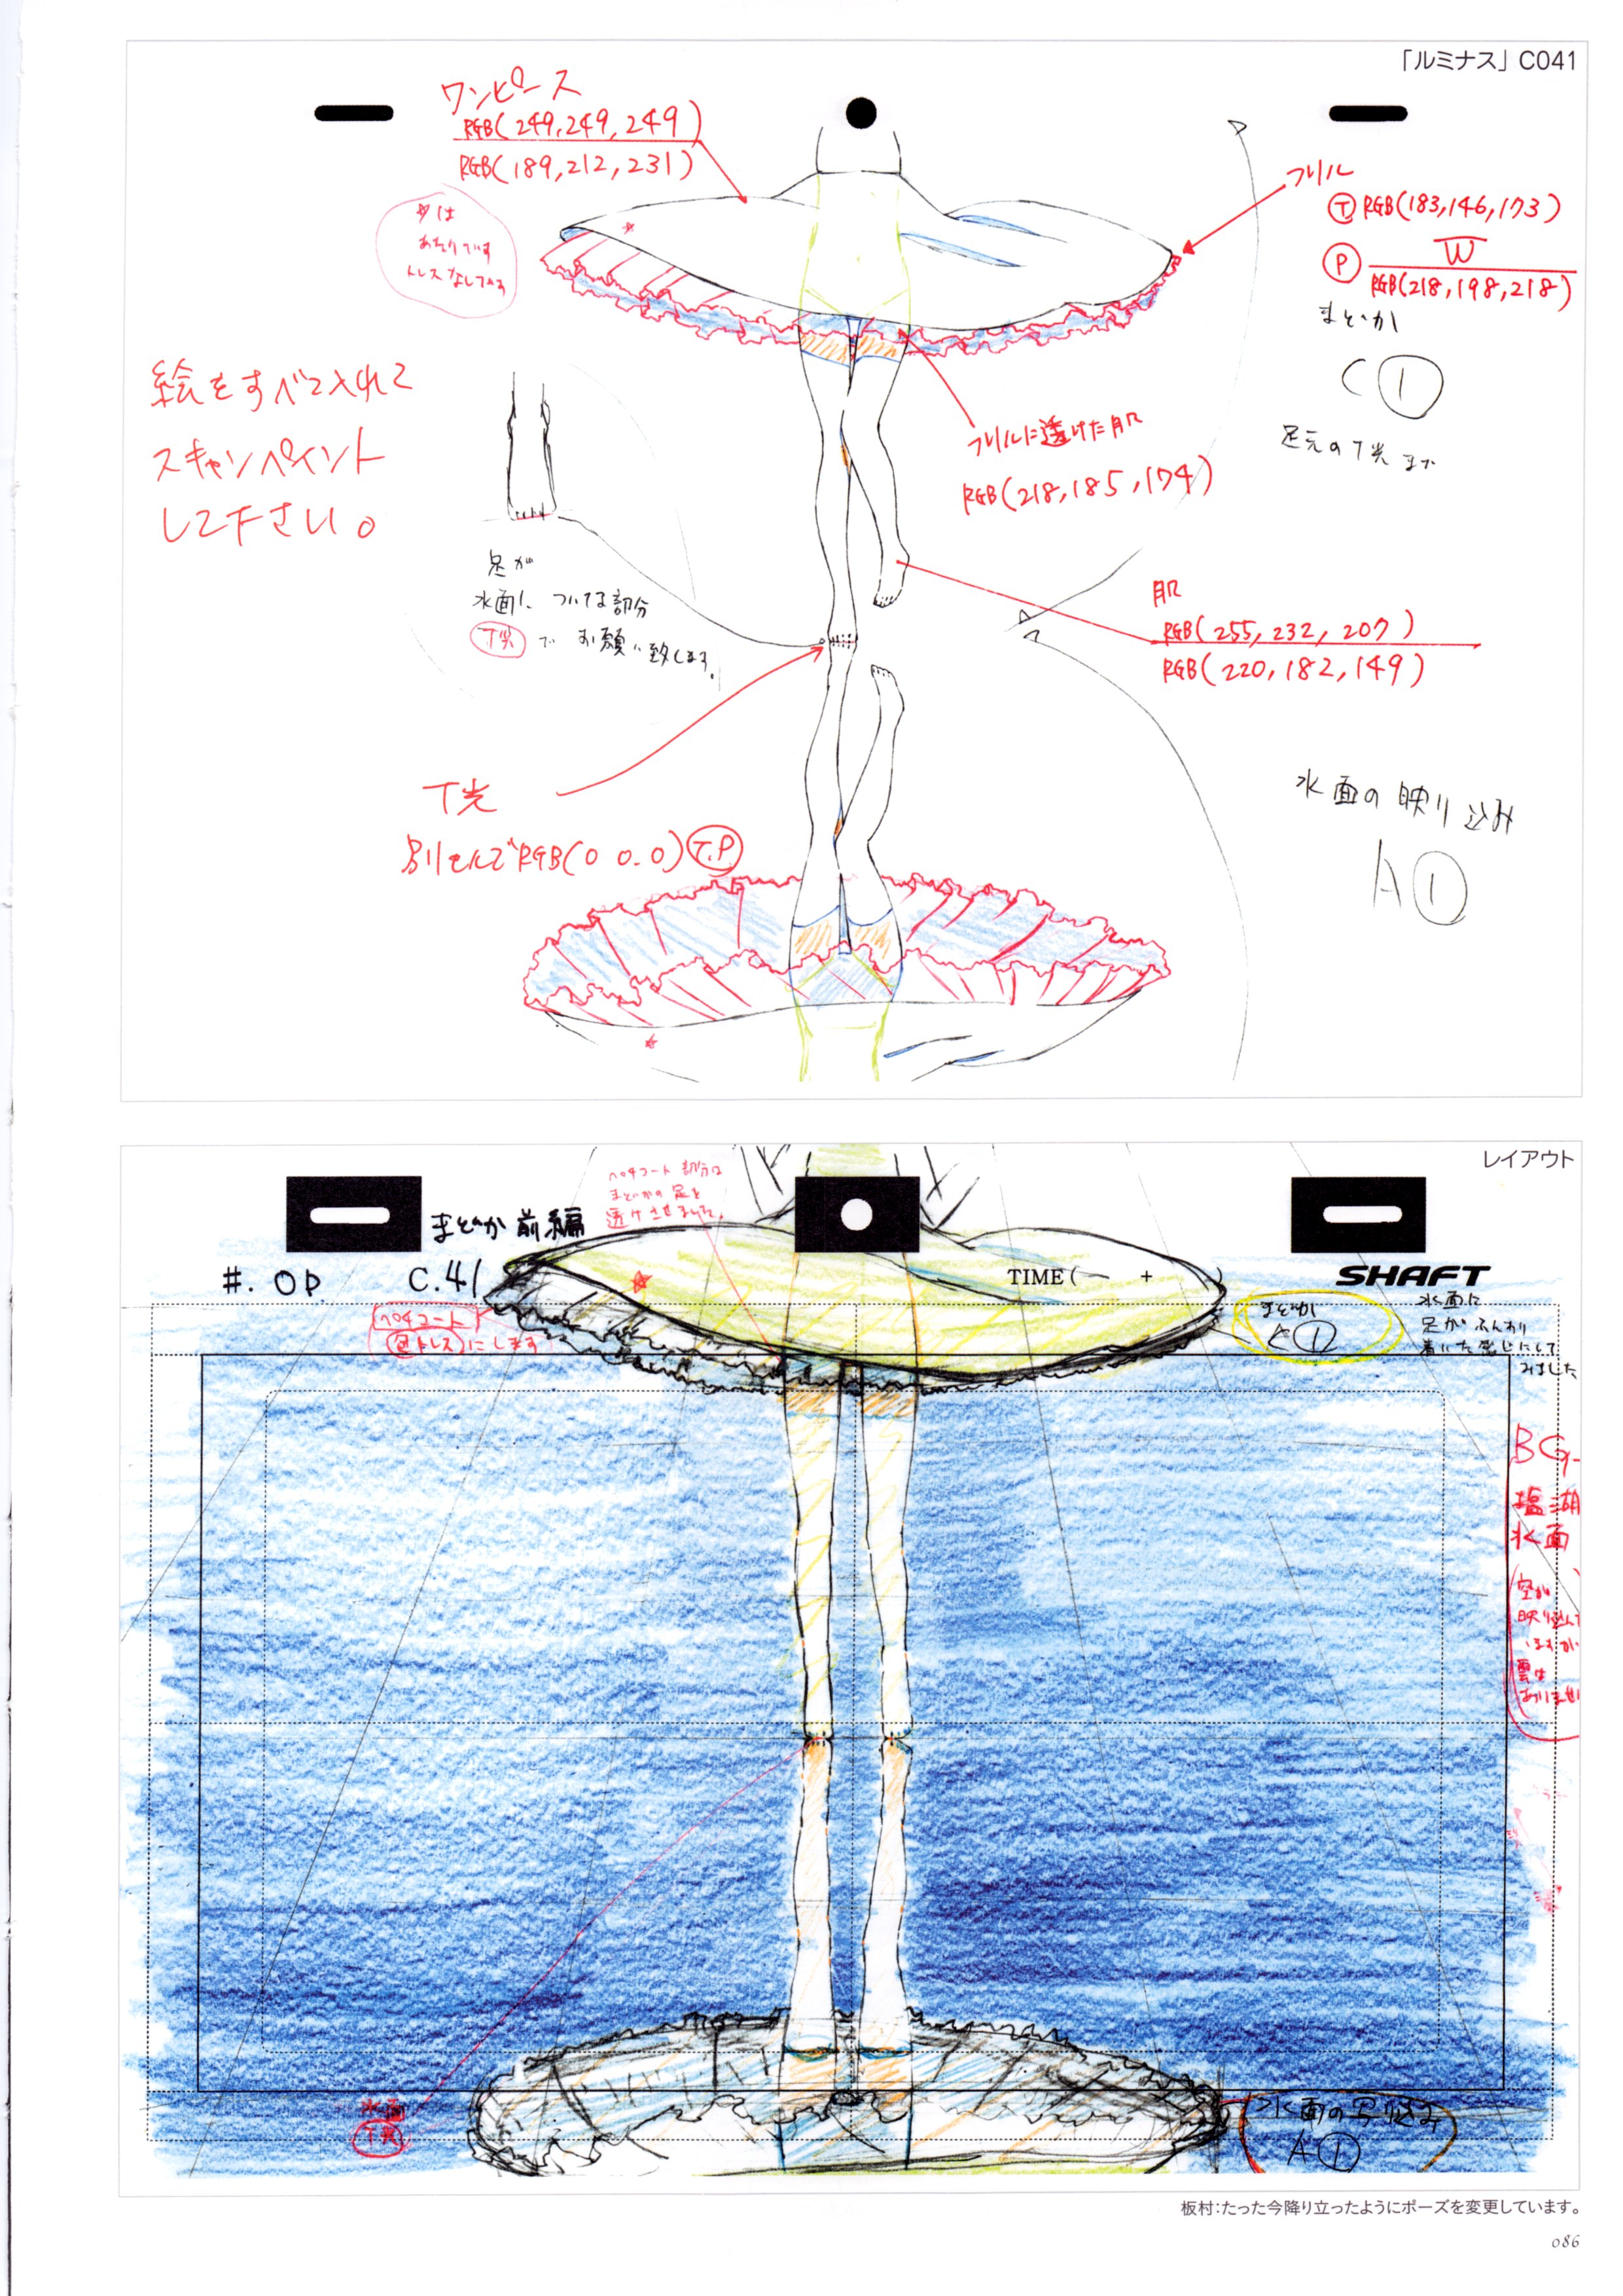 「ルミナス」 C041
ワンピース
RGB(249,249,249)
RGB(189,212,231)
☆は
あたりです
トレスなしです
フリル
Ⓣ RGB(183,146,173)
Ⓟ W
RGB(218,198,218)
まどか
C①
足元のT光まで
絵をすべて入れて
スキャンペイント
して下さい。
フリルに透けた肌
RGB(218,185,174)
足が
水面に ついてる部分
T光 で お願い致します。
肌
RGB(255,232,207)
RGB(220,182,149)
T光
別セルで RGB(0 0.0) T.P
水面の映り込み
A①
レイアウト
ペチコート部分は
まどかの足を
透けさせました。
まどか 前編
#. OP C.41
TIME ( +
SHAFT
ペチコート
色トレスにします
まどか
C①
水面に
足がふんわり
着いた感じにして
みました
BG-
塩湖
水面
空が
映り込んで
いますが
雲は
ありません
水面
T光
水面の写り込み
A①
板村：たった今降り立ったようにポーズを変更しています。
086